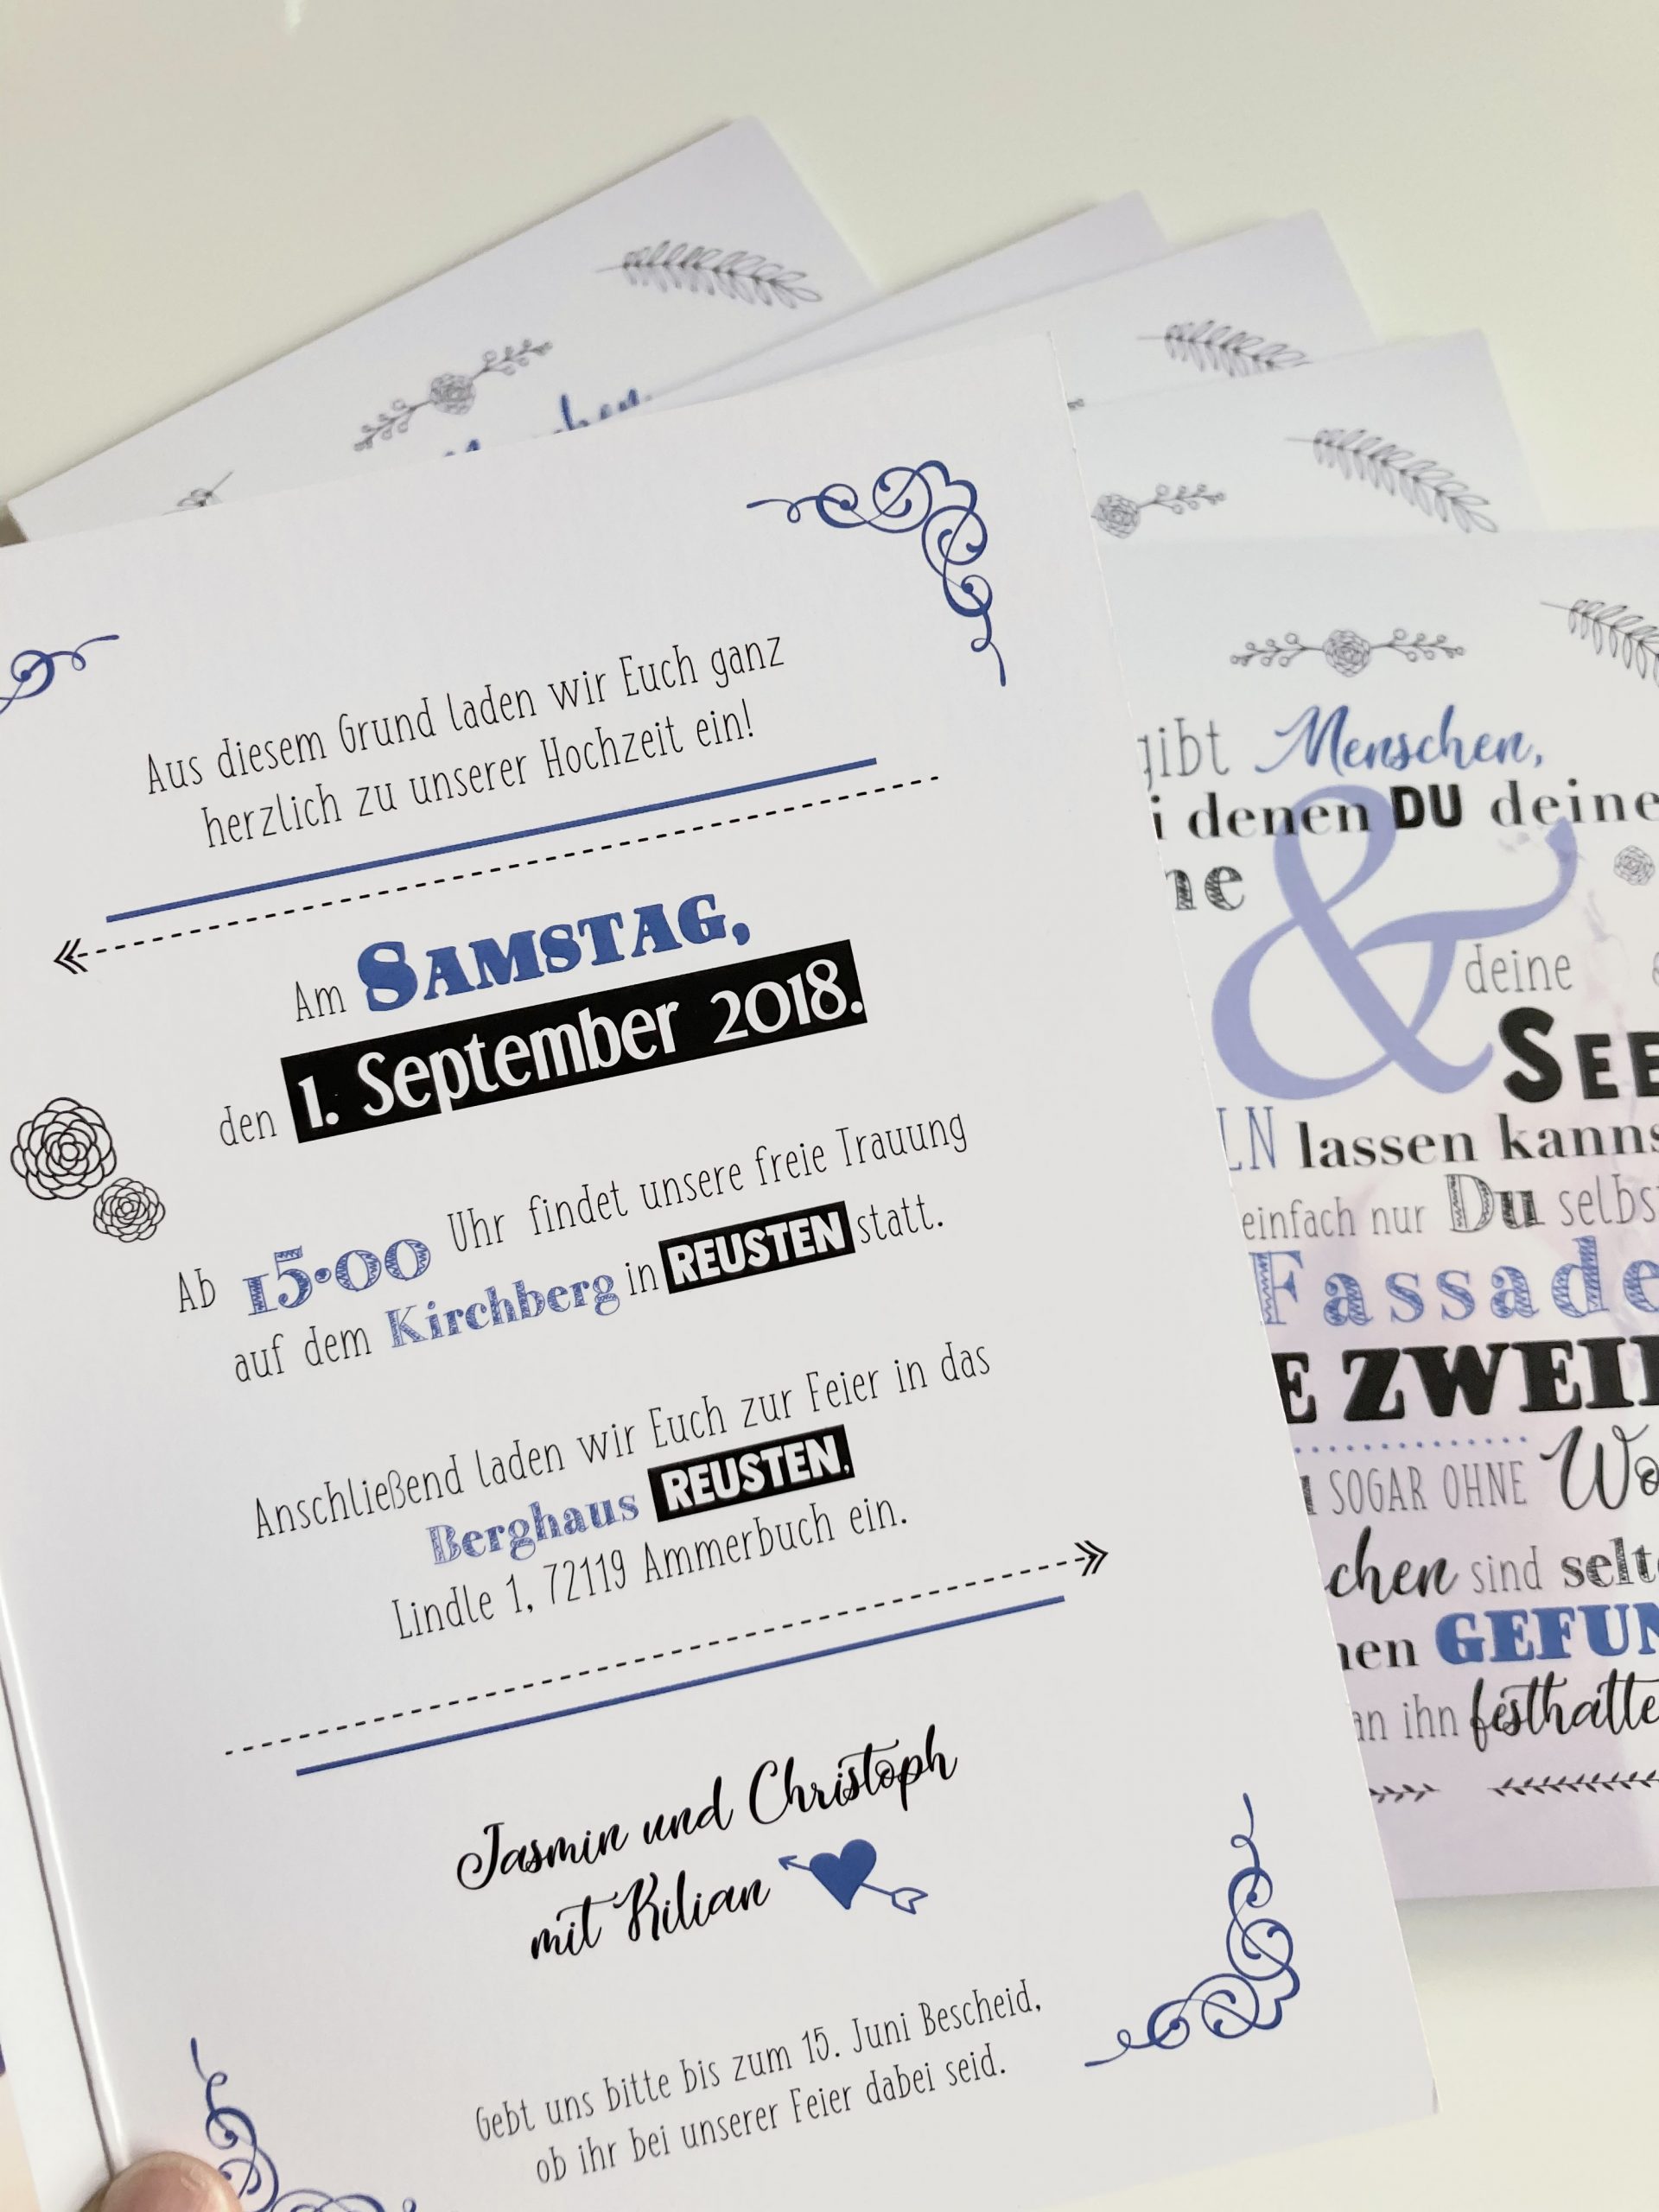 Aus diesem Grund laden wir Euch ganz
herzlich zu unserer Hochzeit ein!
Am SAMSTAG,
den 1. September 2018.
Ab 15:00 Uhr findet unsere freie Trauung
auf dem Kirchberg in REUSTEN statt.
Anschließend laden wir Euch zur Feier in das
Berghaus REUSTEN,
Lindle 1, 72119 Ammerbuch ein.
Jasmin und Christoph
mit Kilian
Gebt uns bitte bis zum 15. Juni Bescheid,
ob ihr bei unserer Feier dabei seid.
gibt Menschen,
denen DU deine
&
deine
lassen
einfach nur Du
Fassade
SOGAR OHNE
sind
GEFUN
an ihn